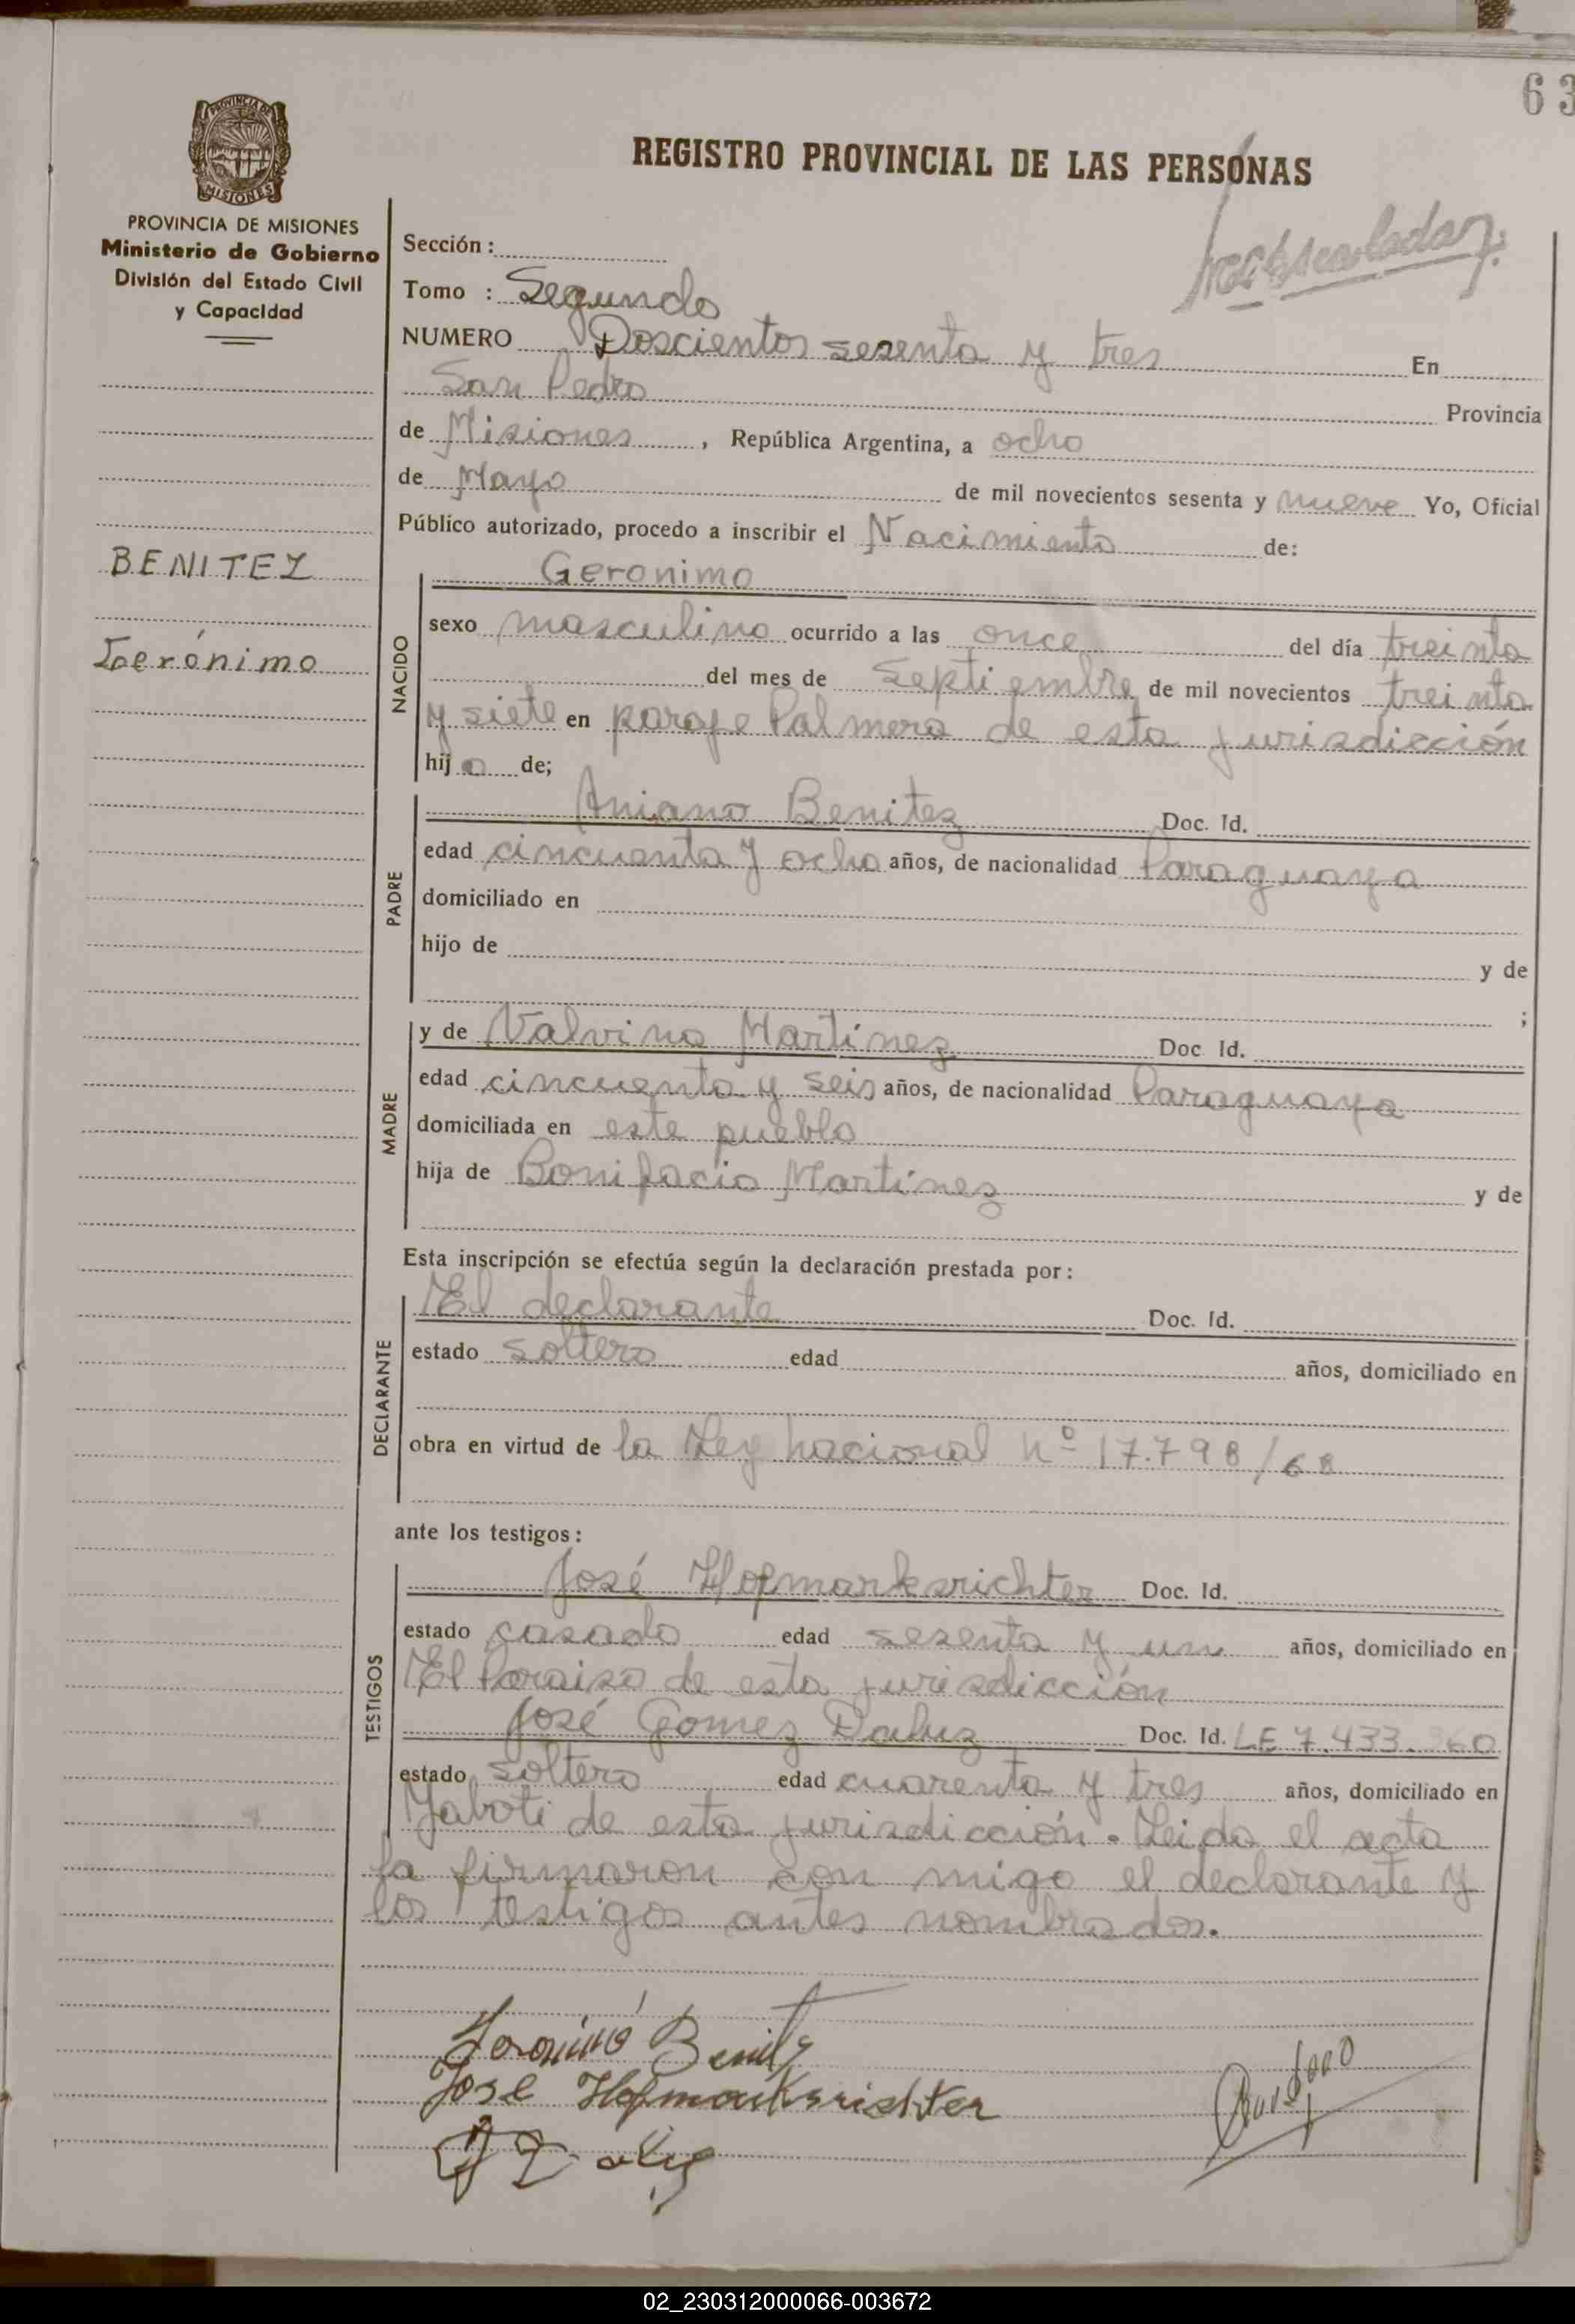 63
REGISTRO PROVINCIAL DE LAS PERSONAS
PROVINCIA DE
MISIONES
PROVINCIA DE MISIONES
Ministerio de Gobierno
División del Estado Civil
y Capacidad
BENITEZ
Gerónimo
Sección:
Tomo : Segundo
NUMERO Doscientos sesenta y tres En
San Pedro Provincia
de Misiones, República Argentina, a ocho
de Mayo de mil novecientos sesenta y nueve Yo, Oficial
Público autorizado, procedo a inscribir el Nacimiento de:
NACIDO
Geronimo
sexo masculino ocurrido a las once del día treinta
del mes de Septiembre de mil novecientos treinta
y siete en paraje Palmera de esta jurisdicción
hijo de;
PADRE
Aniano Benitez Doc. Id.
edad cincuenta y ocho años, de nacionalidad Paraguaya
domiciliado en
hijo de y de
;
MADRE
y de Valvina Martínez Doc Id.
edad cincuenta y seis años, de nacionalidad Paraguaya
domiciliada en este pueblo
hija de Bonifacia Martínez y de
Esta inscripción se efectúa según la declaración prestada por:
DECLARANTE
El declarante Doc. Id.
estado soltero edad años, domiciliado en
obra en virtud de la Ley nacional nº 17.798/68
ante los testigos:
TESTIGOS
José Hopmarksrichter Doc. Id.
estado casado edad sesenta y un años, domiciliado en
El Paraiso de esta jurisdicción
José Gomez Daluz Doc. Id. LE 7.433.360
estado soltero edad cuarenta y tres años, domiciliado en
Yaboti de esta jurisdicción. Leida el acta
la firmaron con migo el declarante y
los testigos antes nombrados.
Geronimo Benitez
José Hopmarksrichter
02_230312000066-003672